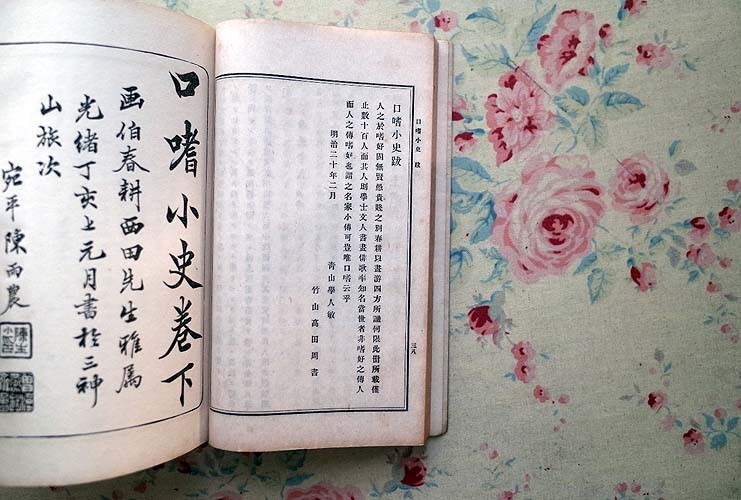 口嗜小史 跋
三八
口嗜小史跋
人之於嗜好固無賢愚貴賤之別春耕以畫游四方所識何限此冊所載僅
止數十百人而其人則學士文人書畫俳歌率知名當世者非嗜好之傳人
而人之傳嗜好也謂之名家小傳可豈唯口嗜云乎
明治二十年二月
青山學人敏
竹山高田周書
口嗜小史卷下
画伯春耕西田先生雅属
光緒丁亥上元月書於三神
山旅次
宛平陳雨農